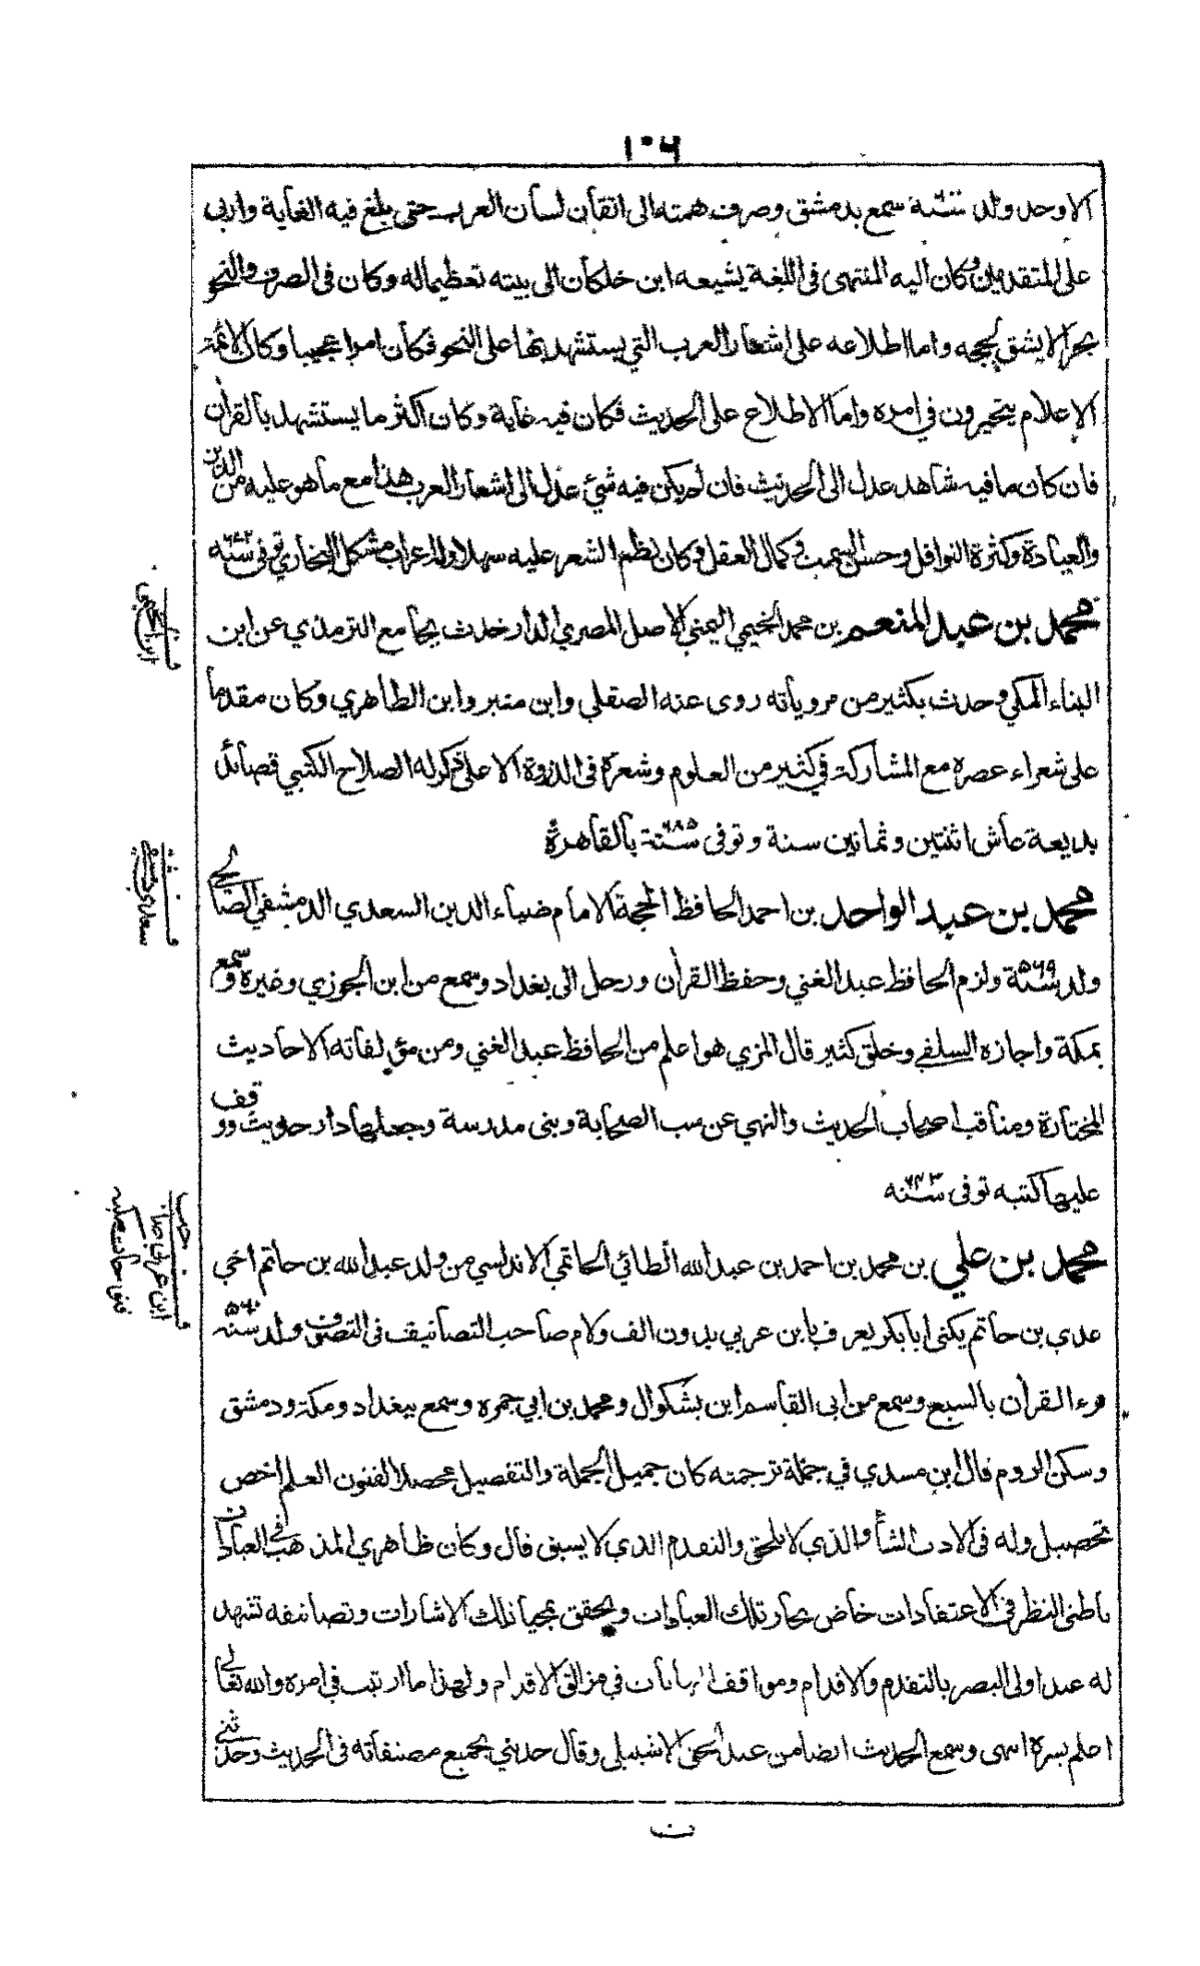 ١٠٦
الاوحد ولد سنة سمع بدمشق وصرف همته الى اتقان لسان العرب حتى بلغ فيه الغاية واربى
على المتقدمين وكان اليه المنتهى فى اللغة يشيعه ابن خلكان الى بيته تعظيما له وكان فى الصرف والنحو
بحرا لا يشق لججه واما اطلاعه على اشعار العرب التي يستشهد بها على النحو فكان امرا عجيبا وكان الائمة
الاعلام يتحيرون في امره واما الاطلاع على الحديث فكان فيه غاية وكان اكثر ما يستشهد بالقران
فان كان ما فيه شاهد عدل الى الحديث فان لم يكن فيه شئ عدل الى اشعار العرب هذا مع ما هو عليه من الدين
والعبادة وكثرة النوافل وحسن السمت وكمال العقل وكان نظم الشعر عليه سهلا وله اعراب مشكل البخاري توفى سنه ٦٧٢
محمد بن عبد المنعم بن محمد الخيمي اليمني الاصل المصري الدار حدث بجامع الترمذي عن ابن
البناء المكي وحدث بكثير من مروياته روى عنه الصقلي وابن منير وابن الظاهري وكان مقدما
على شعراء عصره مع المشاركة في كثير من العلوم وشعره فى الذروة الاعلى ذكر له الصلاح الكتبي قصائد
بديعة عاش اثنتين وثمانين سنة وتوفى سنة ٦٨٥ بالقاهرة
محمد بن عبد الواحد بن احمد الحافظ الحجة الامام ضياء الدين السعدي الدمشقي الصالحي
ولد سنة ٥٦٩ ولزم الحافظ عبد الغني وحفظ القران ورحل الى بغداد وسمع من ابن الجوزي وغيره وسمع
بمكة واجازه السلفي وخلق كثير قال المزي هو اعلم من الحافظ عبد الغني ومن مؤلفاته الاحاديث
المختارة ومناقب اصحاب الحديث والنهي عن سب الصحابة وبنى مدرسة وجعلها دار حديث ووقف
عليها كتبه توفى سنه ٦٤٣
محمد بن علي بن محمد بن احمد بن عبد الله الطائي الحاتمي الاندلسي من ولد عبد الله بن حاتم اخي
عدي بن حاتم يكنى ابا بكر يعرف بابن عربي بدون الف ولام صاحب التصانيف فى التصوف ولد سنة ٥٦٠
قرء القران بالسبع وسمع من ابى القاسم ابن بشكوال ومحمد بن ابي جمره وسمع ببغداد ومكة ودمشق
وسكن الروم قال ابن مسدي في جملة ترجمته كان جميل الجملة والتفصيل محصلا لفنون العلم اخص
تحصيل وله فى الادب الشأو الذي لا يلحق والتقدم الذي لا يسبق قال وكان ظاهري المذهب فى العبادات
باطني النظر في الاعتقادات خاض بحار تلك العبادات وتحقق بمحيا تلك الاشارات وتصانيفه تشهد
له عند اولى البصر بالتقدم والاقدام ومواقف النهايات في مزالق الاقدام ولهذا ما ارتبت في امره والله تعالى
اعلم بسره انتهى وسمع الحديث ايضا من عبد الحق الاشبيلي وقال حدثني بجميع مصنفاته فى الحديث وحدثني
ن
ابن الخيمي
ابن عربي